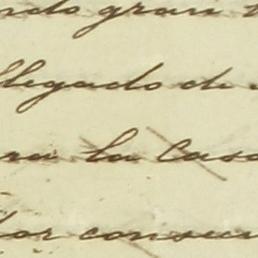 ndo gran
llegado de
ra la Casa
lor consecu